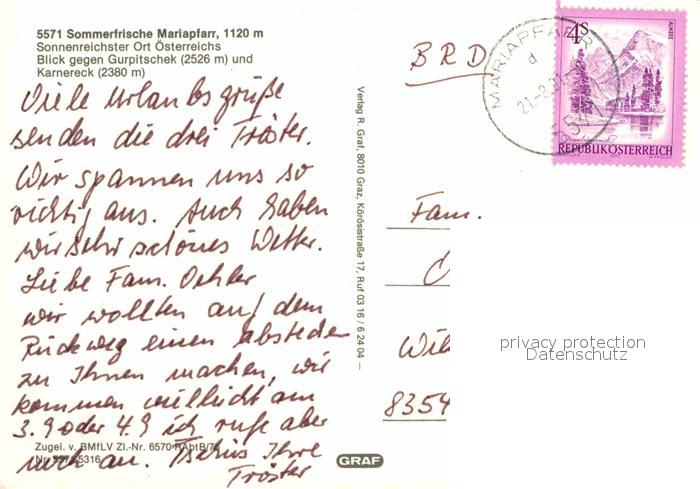 5571 Sommerfrische Mariapfarr, 1120 m
Sonnenreichster Ort Österreichs
Blick gegen Gurpitschek (2526 m) und
Karnereck (2380 m)
Viele Urlaubsgrüße
senden die drei Tröster.
Wir spannen uns so
richtig aus. Auch haben
wir sehr schönes Wetter.
Liebe Fam. Oehler
wir wollten auf dem
Rückweg einen abstecher
zu Ihnen machen, wir
kommen vielleicht am
3.9 oder 4.9 ich rufe aber
noch an. Tschüs Ihre
Tröster
Zugel. v. BMfLV Zl.-Nr. 6570-RAbtB/76
Nr. 5316
Verlag R. Graf, 8010 Graz, Körösistraße 17, Ruf 03 16 / 6 24 04 —
GRAF
BRD
MARIAPFARR
d
21.-8.81
557
4S
ALMSEE
REPUBLIK ÖSTERREICH
Fam.
Wil
8354
privacy protection
Datenschutz